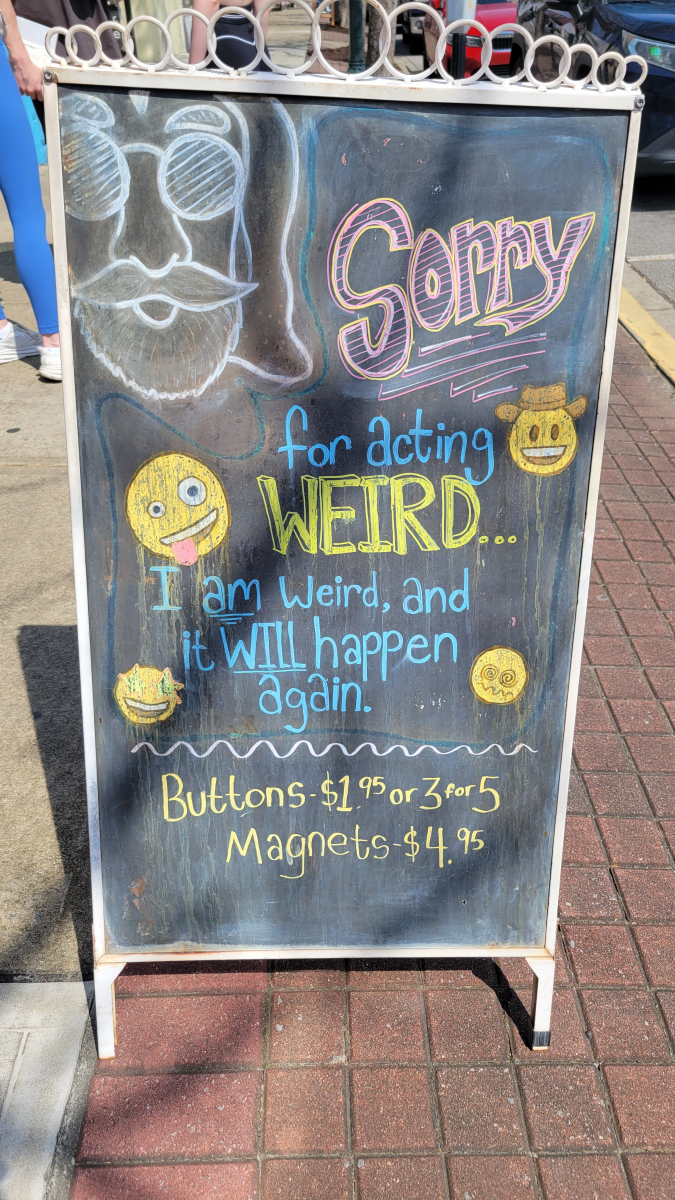 Sorry
for acting
WEIRD...
I am Weird, and
it WILL happen
again.
Buttons-$1.95 or 3 for 5
Magnets-$4.95